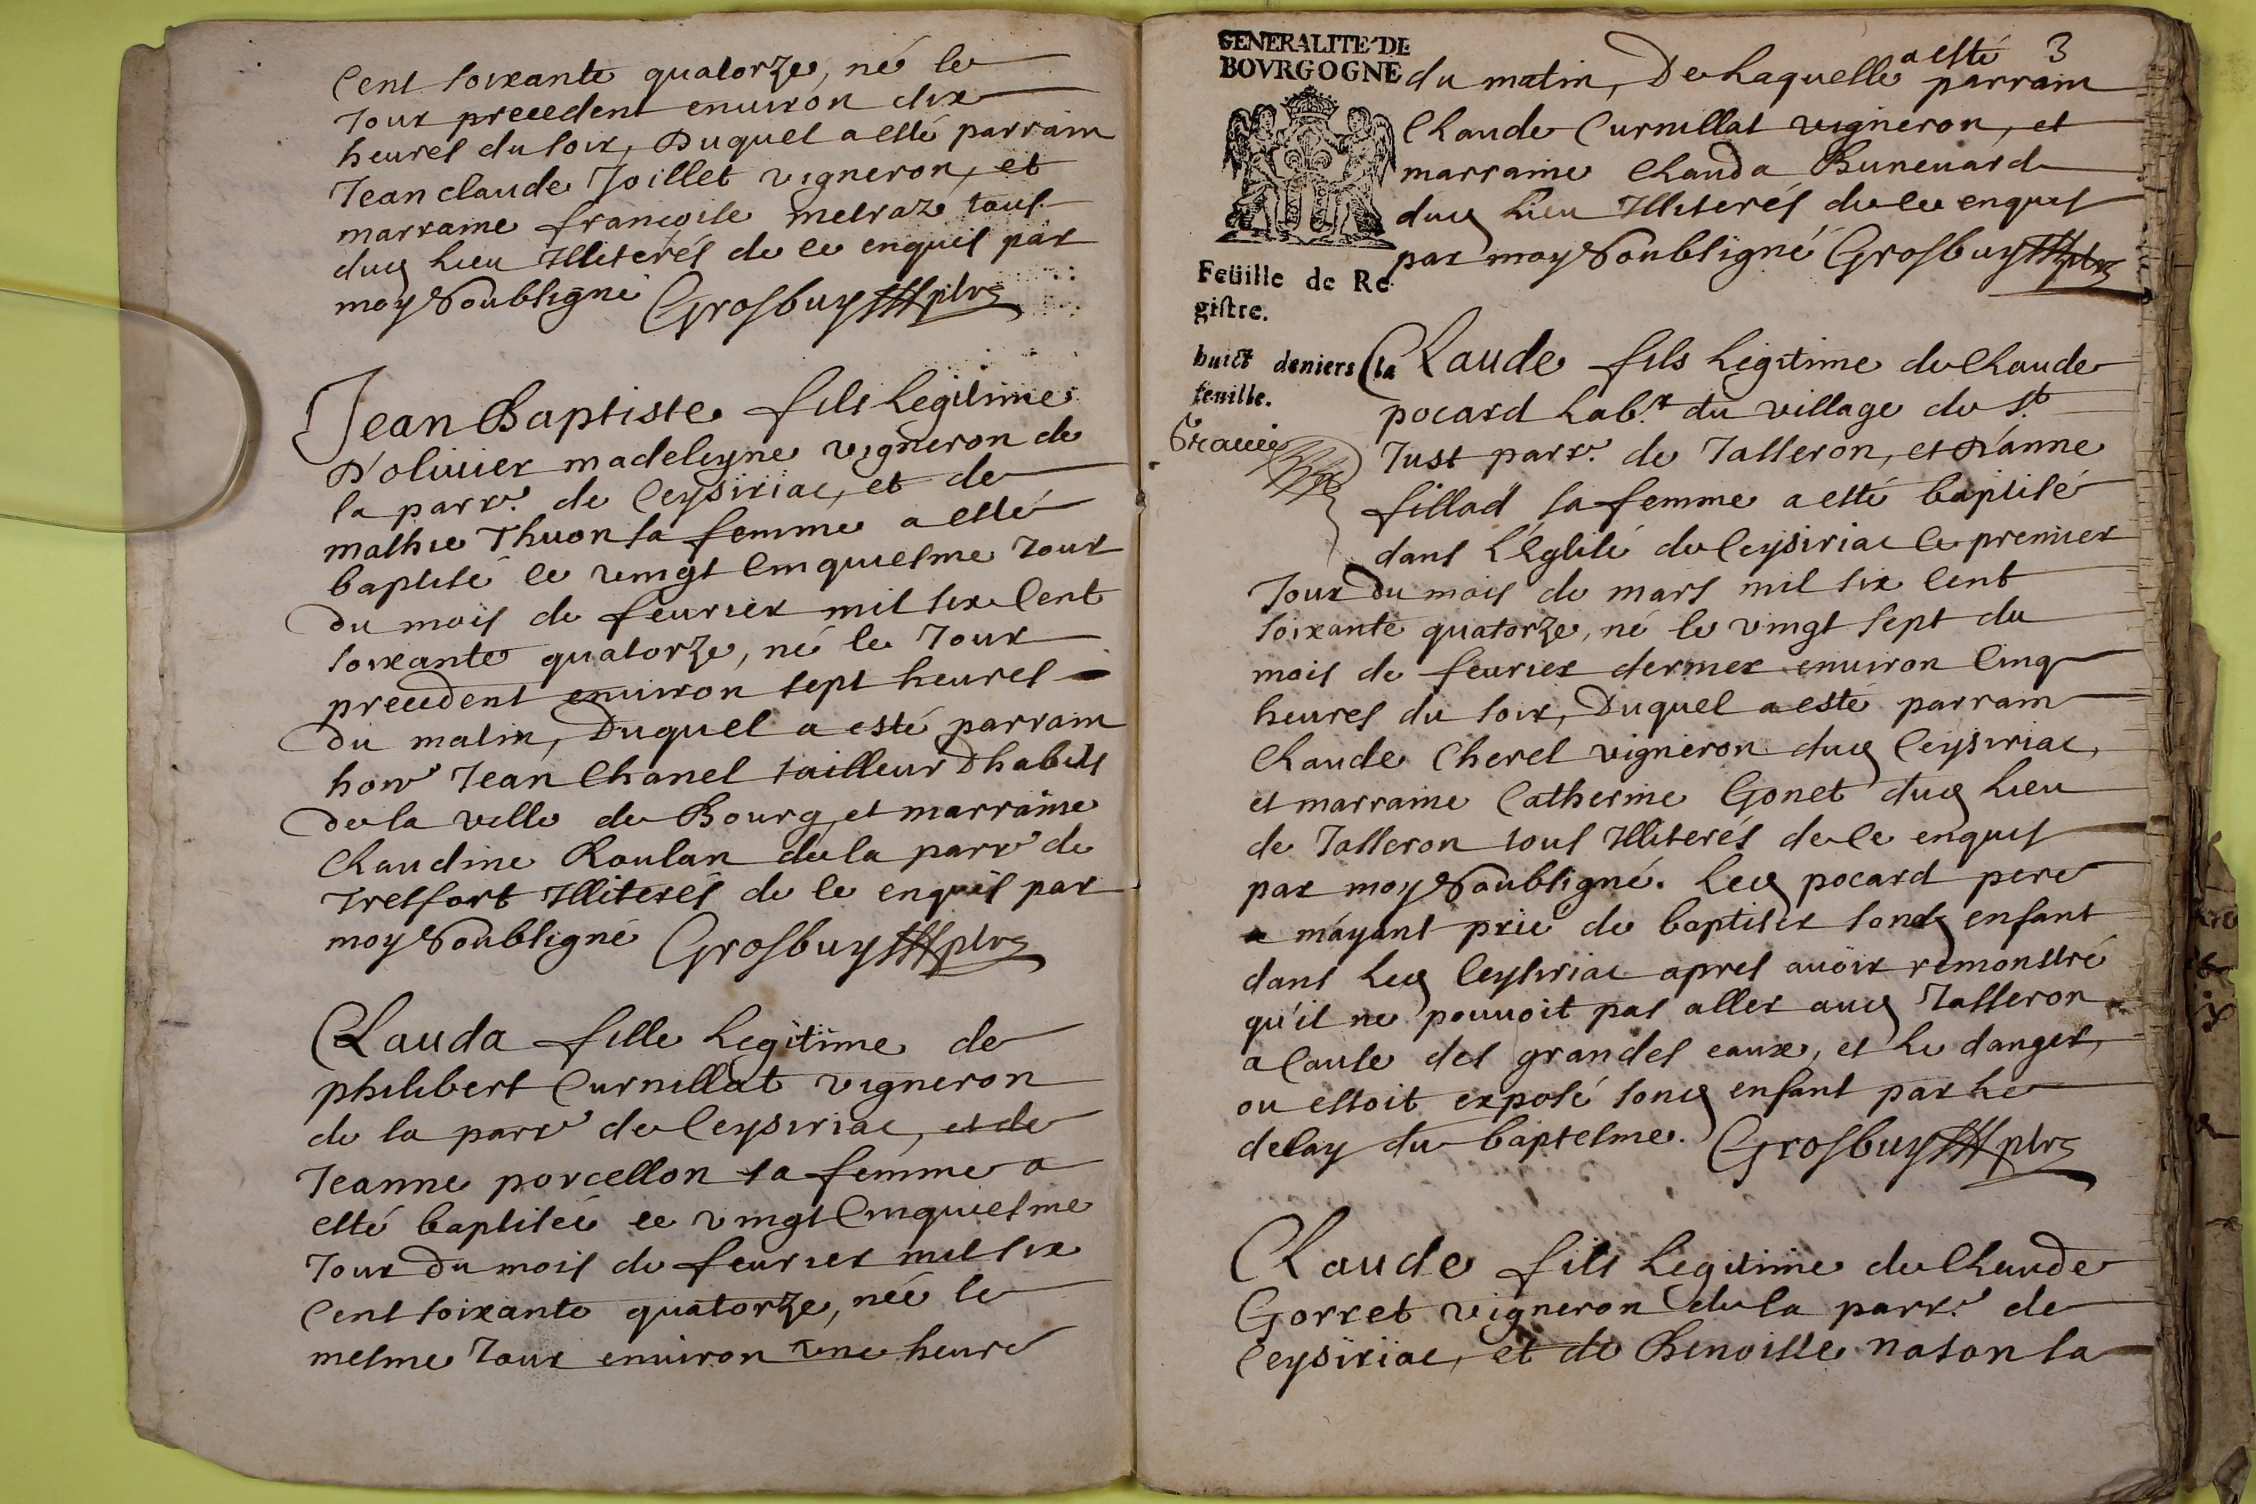 Cent soixante quatorze, né le
Jour precedent environ dix
heures du soir, Duquel a esté parrain
Jean claude Joillet vigneron, et
marraine françoise metraz tous
dud lieu Illiterés de ce enquis par
moy Soubsigné Grosbuy ptre
Jean Baptiste fils legitime
D'olivier madeleyne vigneron de
la parr.e de Ceysiriac, et de
mathie Thuon sa femme a esté
baptisé le vingt Cinquiesme Jour
Du mois de feurier mil six Cent
soixante quatorze, né le Jour
precedent environ sept heures
Du matin, Duquel a esté parrain
hon.e Jean Chanel tailleur D'habits
De la ville de Bourg, et marraine
Claudine Roulan de la parr.e de
Tresfort Illiterés de ce enquis par
moy Soubsigné Grosbuy ptre
Clauda fille legitime de
philibert Curnillat vigneron
de la parr.e de Ceysiriac, et de
Jeanne porcellon sa femme a
esté baptisée le vingt Cinquiesme
Jour Du mois de feurier mil six
Cent soixante quatorze, née le
mesme Jour environ une heure
GENERALITE DE
BOVRGOGNE
Feüille de Re
gistre.
huict deniers la
feuille.
3
du matin, De Laquelle a esté parrain
Claude Curnillat vigneron, et
marraine Clauda Buneuard
dud lieu Illiterés de ce enquis
par moy Soubsigné Grosbuy ptre
Claude fils legitime de Claude
pocard Lab.r du village de S.t
Just parr.e de Jasseron, et D'anne
fillod sa femme a esté baptisé
dans L'Eglise de Ceysiriac le premier
Jour Du mois de mars mil six Cent
soixante quatorze, né le vingt sept du
mois de feurier dernier environ Cinq
heures du soir, Duquel a esté parrain
Claude Cherel vigneron dud Ceysiriac,
et marraine Catherine Gonet dud lieu
de Jasseron tous Illiterés de ce enquis
par moy Soubsigné. Led pocard pere
m'ayant prié de baptiser sond enfant
dans led Ceysiriac apres auoir remonstré
qu'il ne pouuoit pas aller aud Jasseron
a Cause des grandes eaux, et le danger,
ou estoit exposé sond enfant par le
delay du baptesme. Grosbuy ptre
Claude fils legitime de Claude
Gorret vigneron de la parr.e de
Ceysiriac, et de Benoiste nason sa